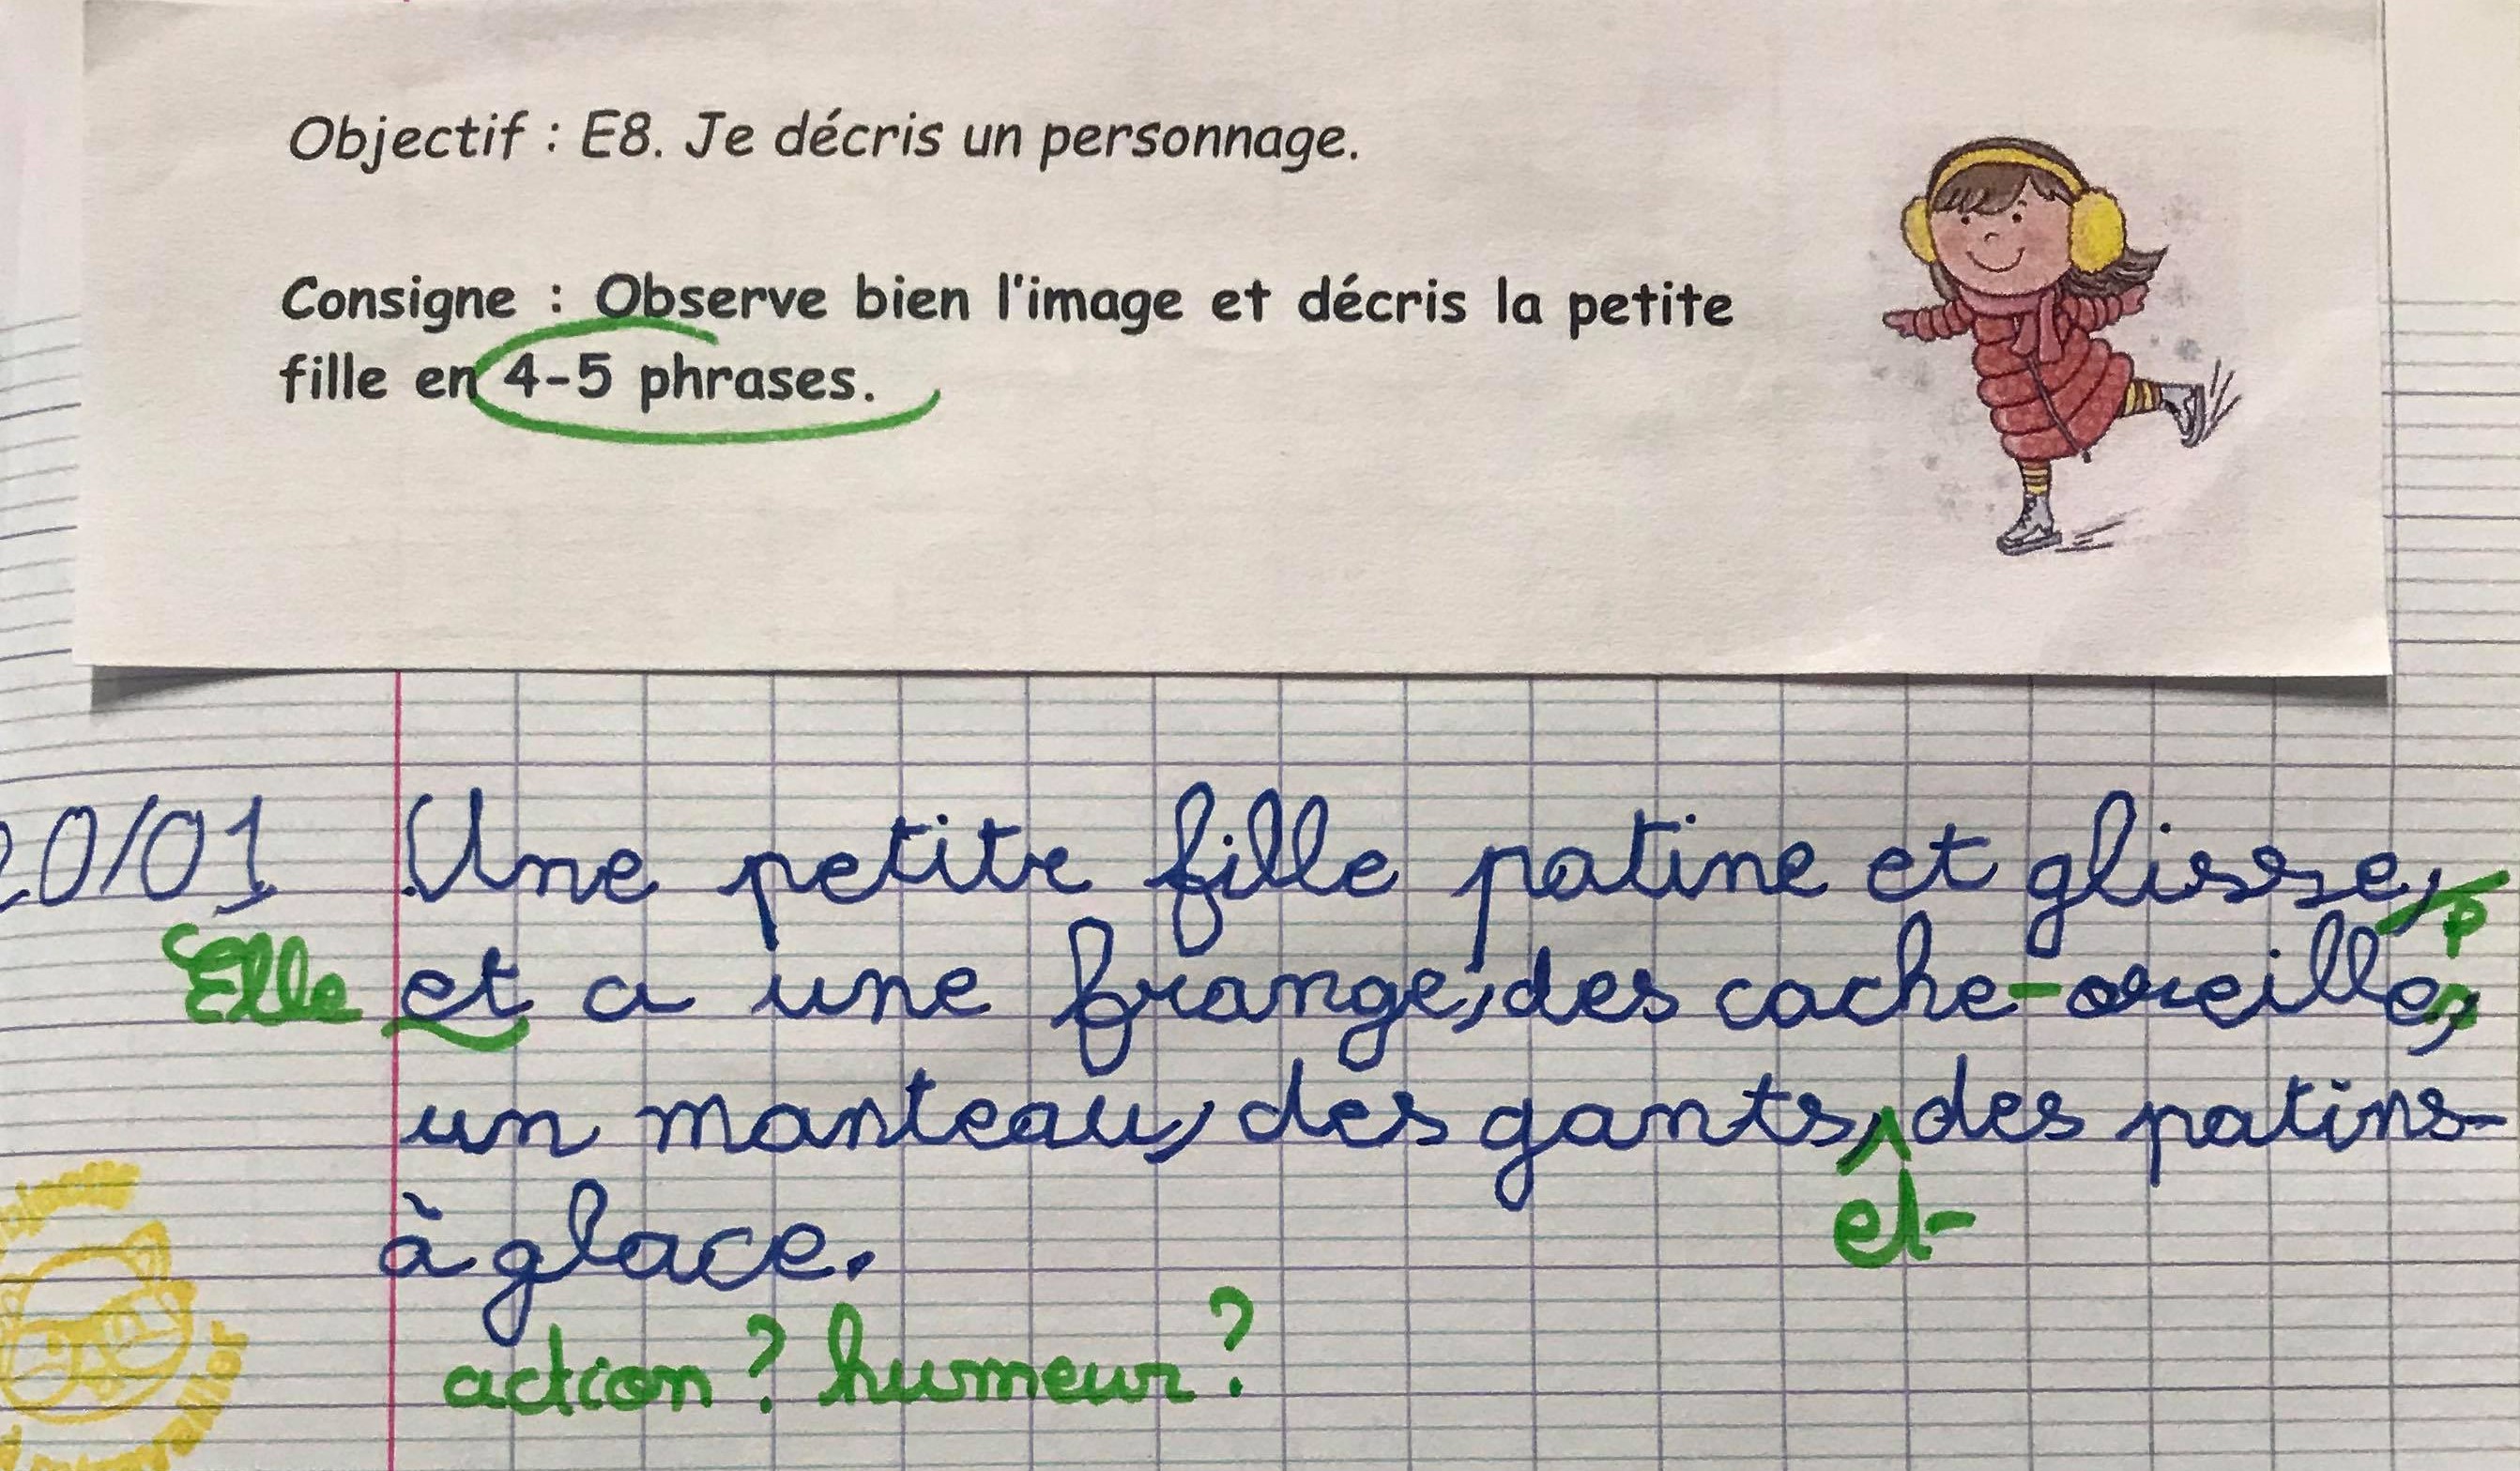 Objectif : E8. Je décris un personnage.
Consigne : Observe bien l'image et décris la petite
fille en 4-5 phrases.
20/01 Une petite fille patine et glisse,
Elle et a une frange, des cache-oreilles,
un manteau, des gants, des patins-
et
à glace.
action ? humeur ?